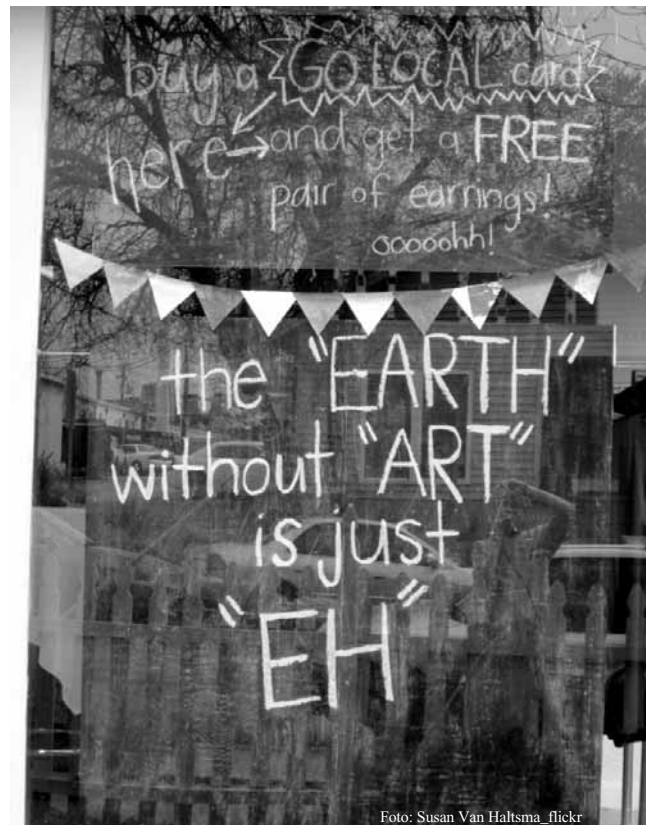 buy a GO LOCAL card
here → and get a FREE
pair of earrings!
ooooohh!
the "EARTH"
without "ART"
is just
"EH"
Foto: Susan Van Haltsma_flickr